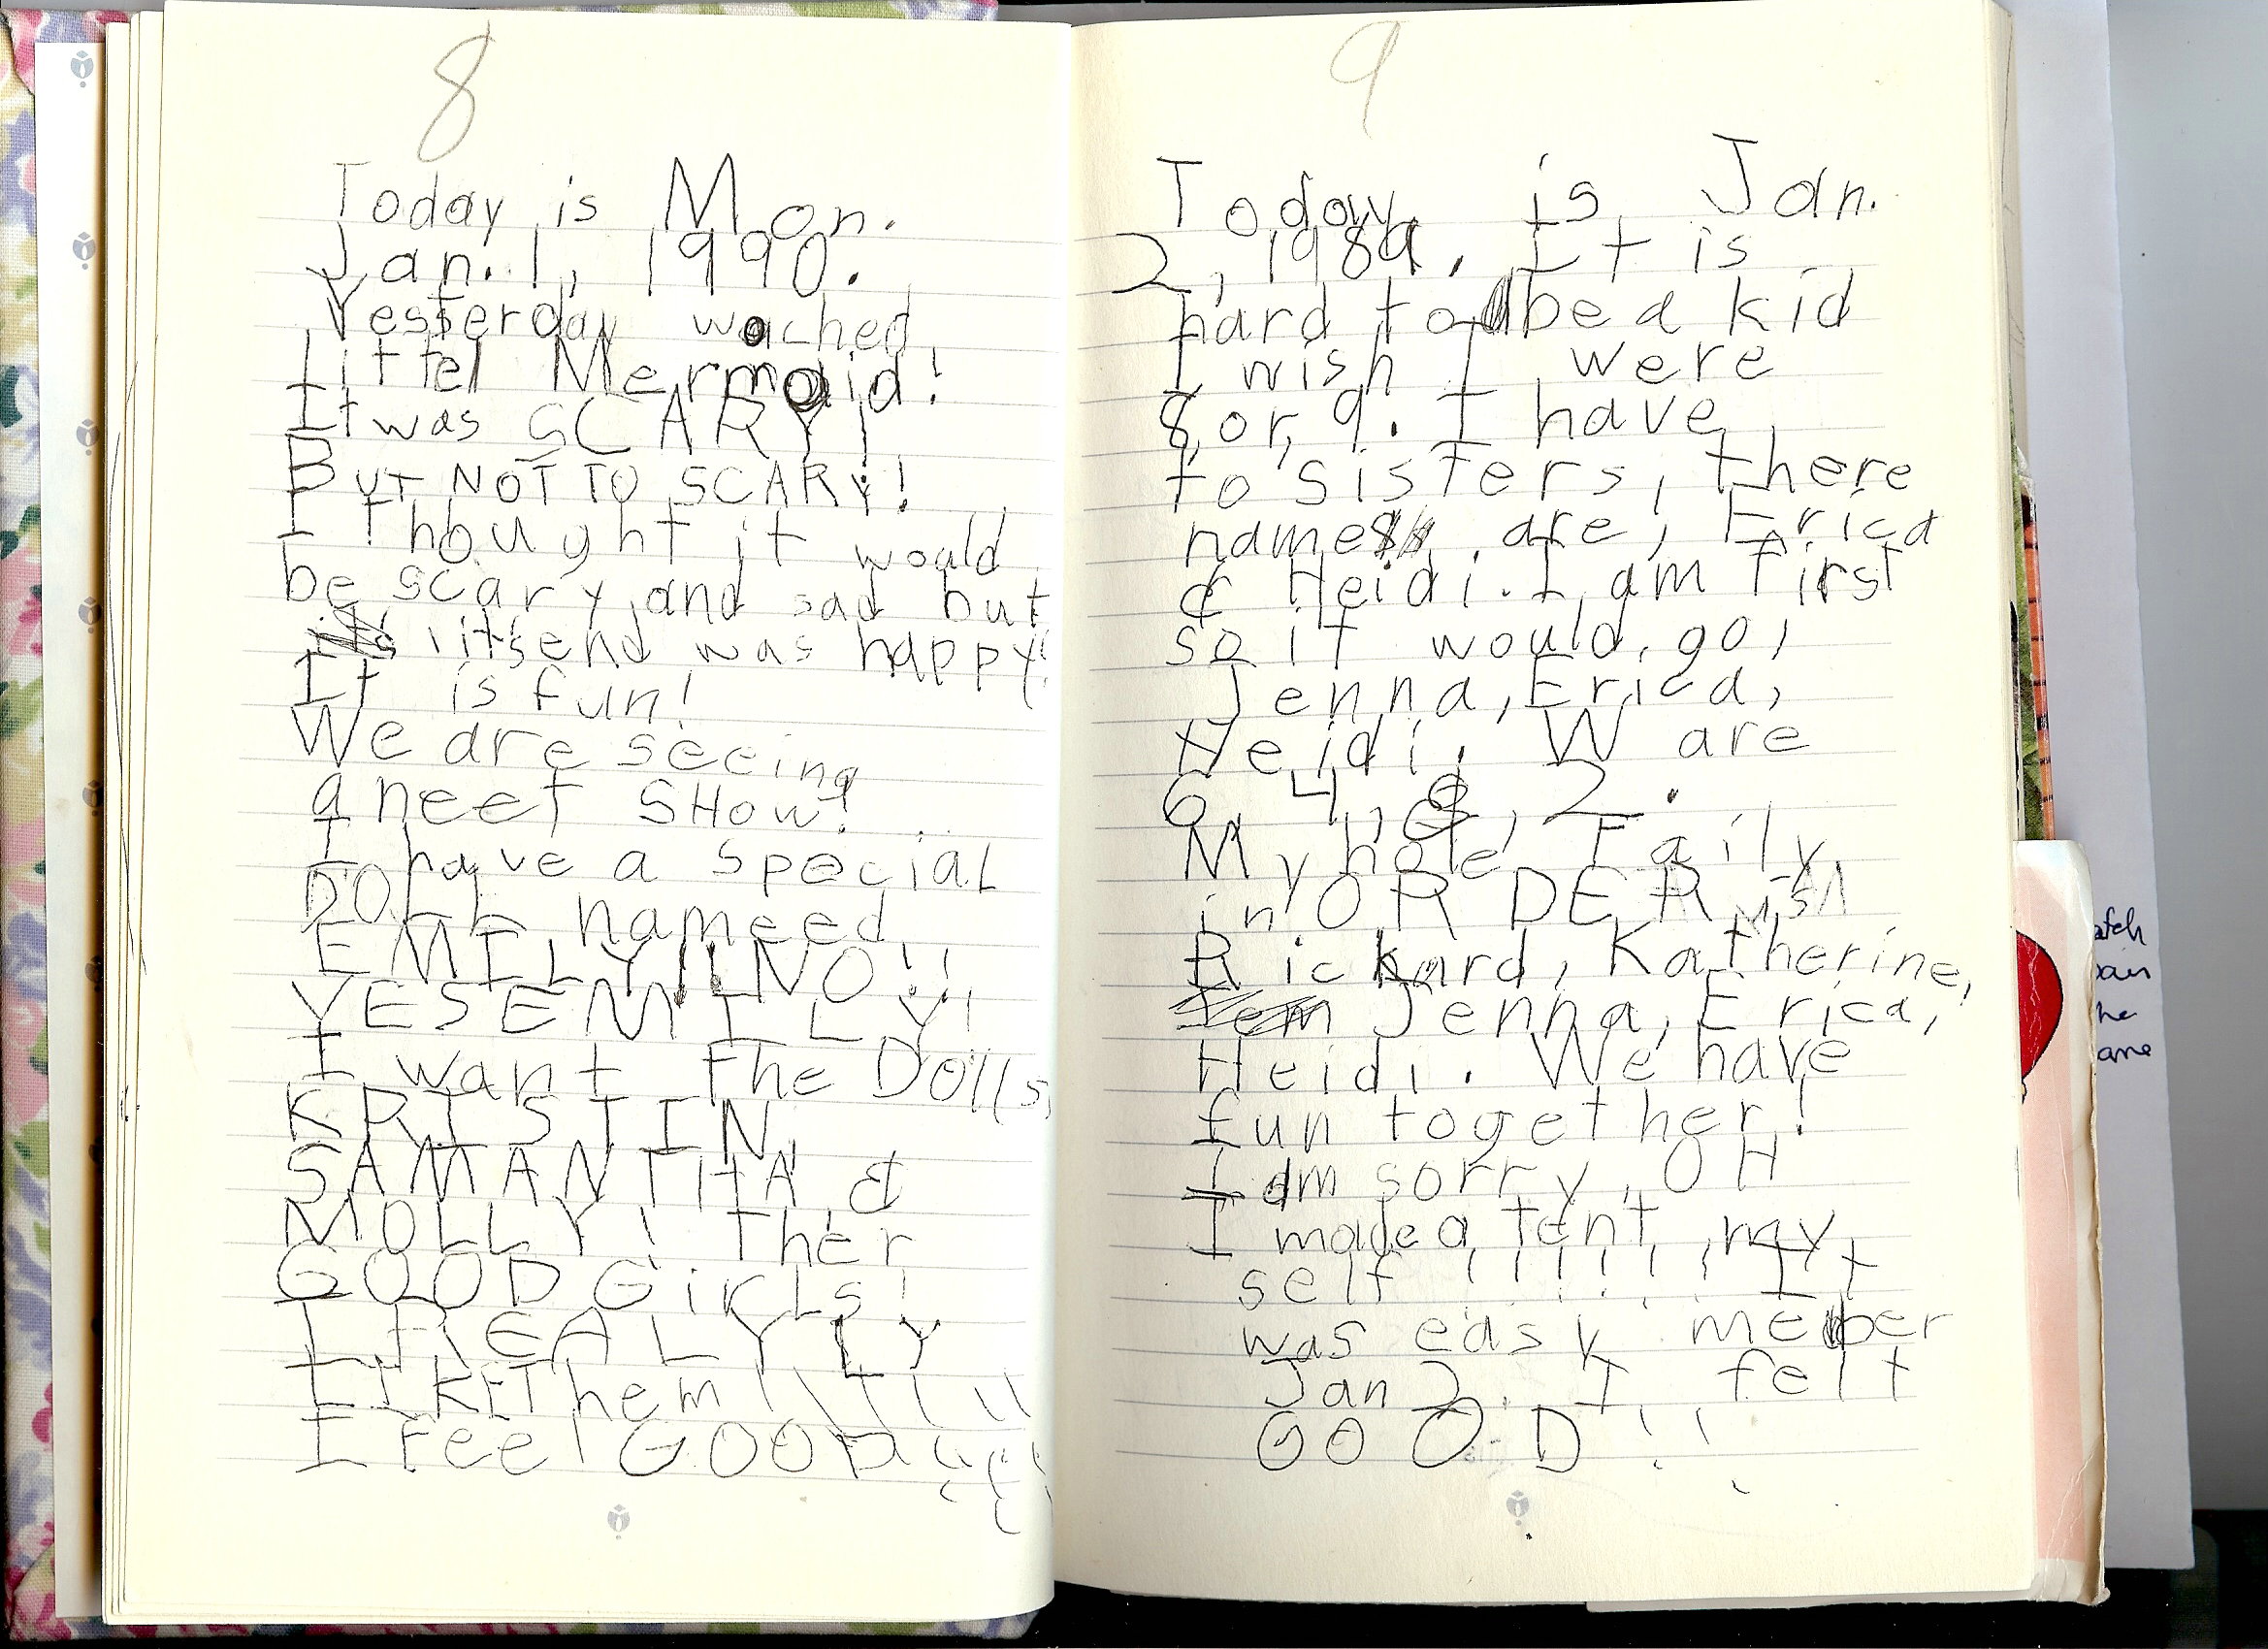 8
Today is Mon.
Jan. 1, 1990.
Yesterday wached
Littel Mermaid!
It was SCARY!
BUT NOT TO SCARY!
I thought it would
be scary and sad but
its end was happy!
It is fun!
We are seeing
a neet SHOW!
I have a special
DOLL nameed
EMILY! NO!!
YES EMILY!
I want the Dolls,
KRISTIN,
SAMANTHA, &
MOLLY! Ther
GOOD GirLs!
I REALYLY
LIKE Them!!!!!!
I feel GOOD!!!!
9
Today is Jan.
2, 1989. It is
hard to be a kid
I wish I were
8, or, 9. I have
to sisters, there
names are, Erica
& Heidi. I am first
so it would, go,
Jenna, Erica,
Heidi. W are
6, 4, 2.
My hole Faily
in ORDER is
Rickard, Katherine,
Jenna, Erica,
Heidi. We have
fun together!
I am sorry, OH
I made a tent, my
self !!!!!! It
was easy. member
Jan 2. I felt
GOOD!!
atch
he
ame